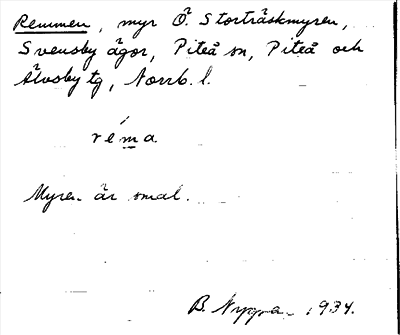 Remmen, myr Ö. Storträskmyren,
Svensby ägor, Piteå sn, Piteå och
Älvsby tg, Norrb. l.
réma
Myren är smal.
B. Nyppa 1934.